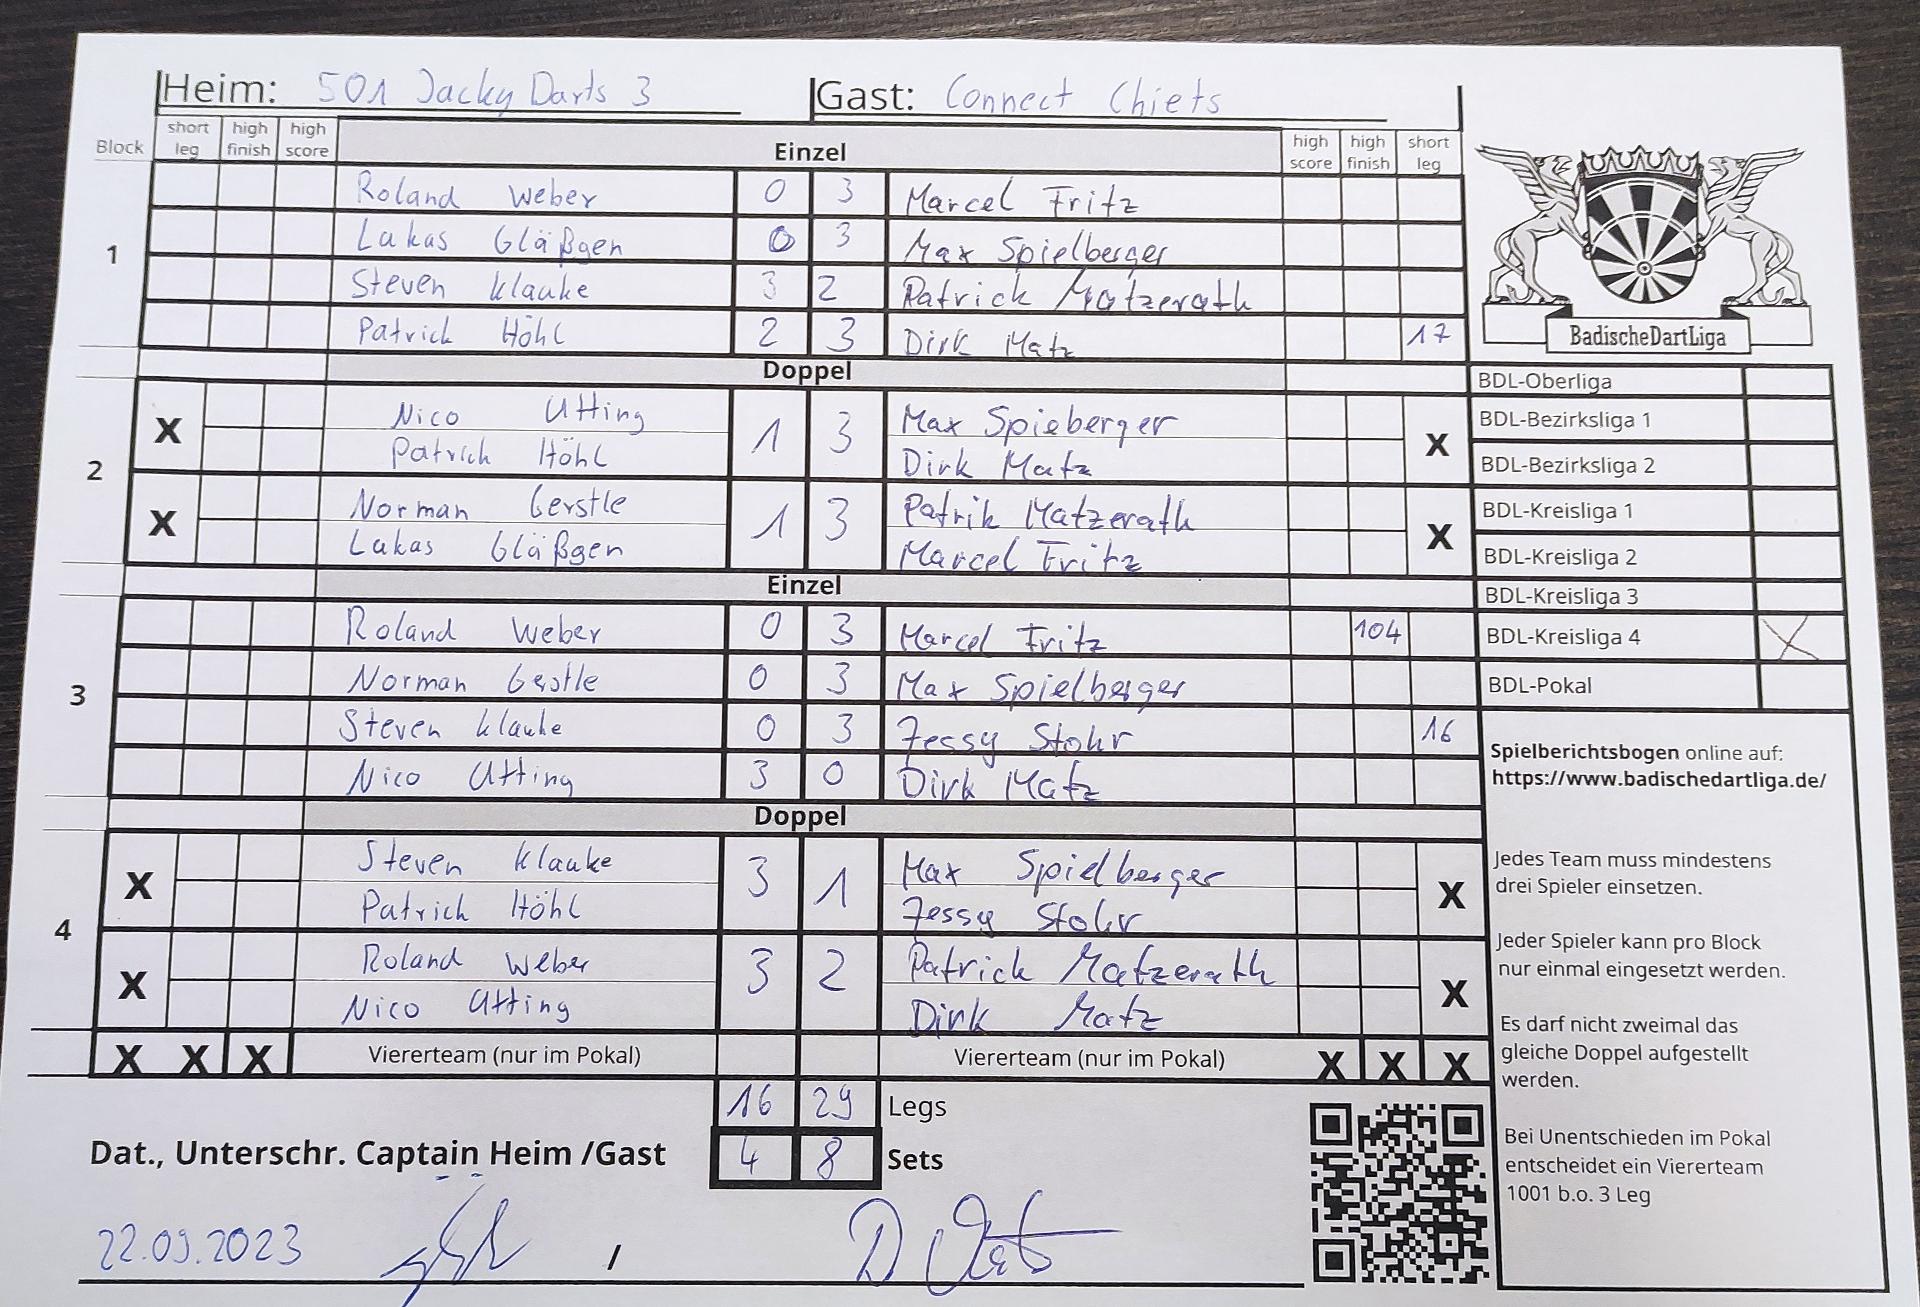 Heim: 501 Jacky Darts 3 Gast: Connect Chiefs
Block short leg high finish high score Einzel high score high finish short leg
1
Roland Weber 0 3 Marcel Fritz
Lukas Gläßgen 0 3 Max Spielberger
Steven Klauke 3 2 Patrick Matzerath
Patrick Höhl 2 3 Dirk Matz 17
BadischeDartLiga
Doppel
2
X Nico Utting 1 3 Max Spieberger X
Patrick Höhl Dirk Matz
X Norman Gerstle 1 3 Patrik Matzerath X
Lukas Gläßgen Marcel Fritz
Einzel
3
Roland Weber 0 3 Marcel Fritz 104
Norman Gerstle 0 3 Max Spielberger
Steven Klauke 0 3 Jessy Stohr 16
Nico Utting 3 0 Dirk Matz
Doppel
4
X Steven Klauke 3 1 Max Spielberger X
Patrick Höhl Jessy Stohr
X Roland Weber 3 2 Patrick Matzerath X
Nico Utting Dirk Matz
X X X Viererteam (nur im Pokal) Viererteam (nur im Pokal) X X X
16 29 Legs
4 8 Sets
Dat., Unterschr. Captain Heim /Gast
22.09.2023 /
BDL-Oberliga
BDL-Bezirksliga 1
BDL-Bezirksliga 2
BDL-Kreisliga 1
BDL-Kreisliga 2
BDL-Kreisliga 3
BDL-Kreisliga 4 X
BDL-Pokal
Spielberichtsbogen online auf:
https://www.badischedartliga.de/
Jedes Team muss mindestens
drei Spieler einsetzen.
Jeder Spieler kann pro Block
nur einmal eingesetzt werden.
Es darf nicht zweimal das
gleiche Doppel aufgestellt
werden.
Bei Unentschieden im Pokal
entscheidet ein Viererteam
1001 b.o. 3 Leg